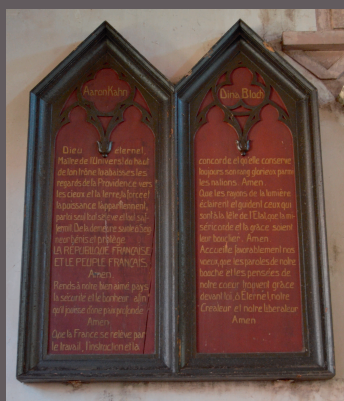 Aaron Kahn
Dieu éternel,
Maître de l'Univers! du haut
de ton trône tu abaisses les
regards de ta Providence vers
les cieux et la terre, la force et
la puissance t'appartiennent,
par toi seul tout s'élève et tout s'af-
fermit. De ta demeure sainte ô Sei-
gneur bénis et protège
LA RÉPUBLIQUE FRANÇAISE
ET LE PEUPLE FRANÇAIS.
Amen
Rends à notre bien aimé pays
la sécurité et le bonheur afin
qu'il jouisse d'une paix profonde
Amen.
Que la France se relève par
le travail, l'instruction et la
Dina Bloch
concorde et qu'elle conserve
toujours son rang glorieux parmi
les nations. Amen.
Que les rayons de ta lumière
éclairent et guident ceux qui
sont à la tête de l'État, que ta mi-
séricorde et ta grâce soient
leur bouclier. Amen.
Accueille favorablement nos
voeux, que les paroles de notre
bouche et les pensées de
notre coeur trouvent grâce
devant toi, ô Éternel, notre
Créateur et notre libérateur
Amen.